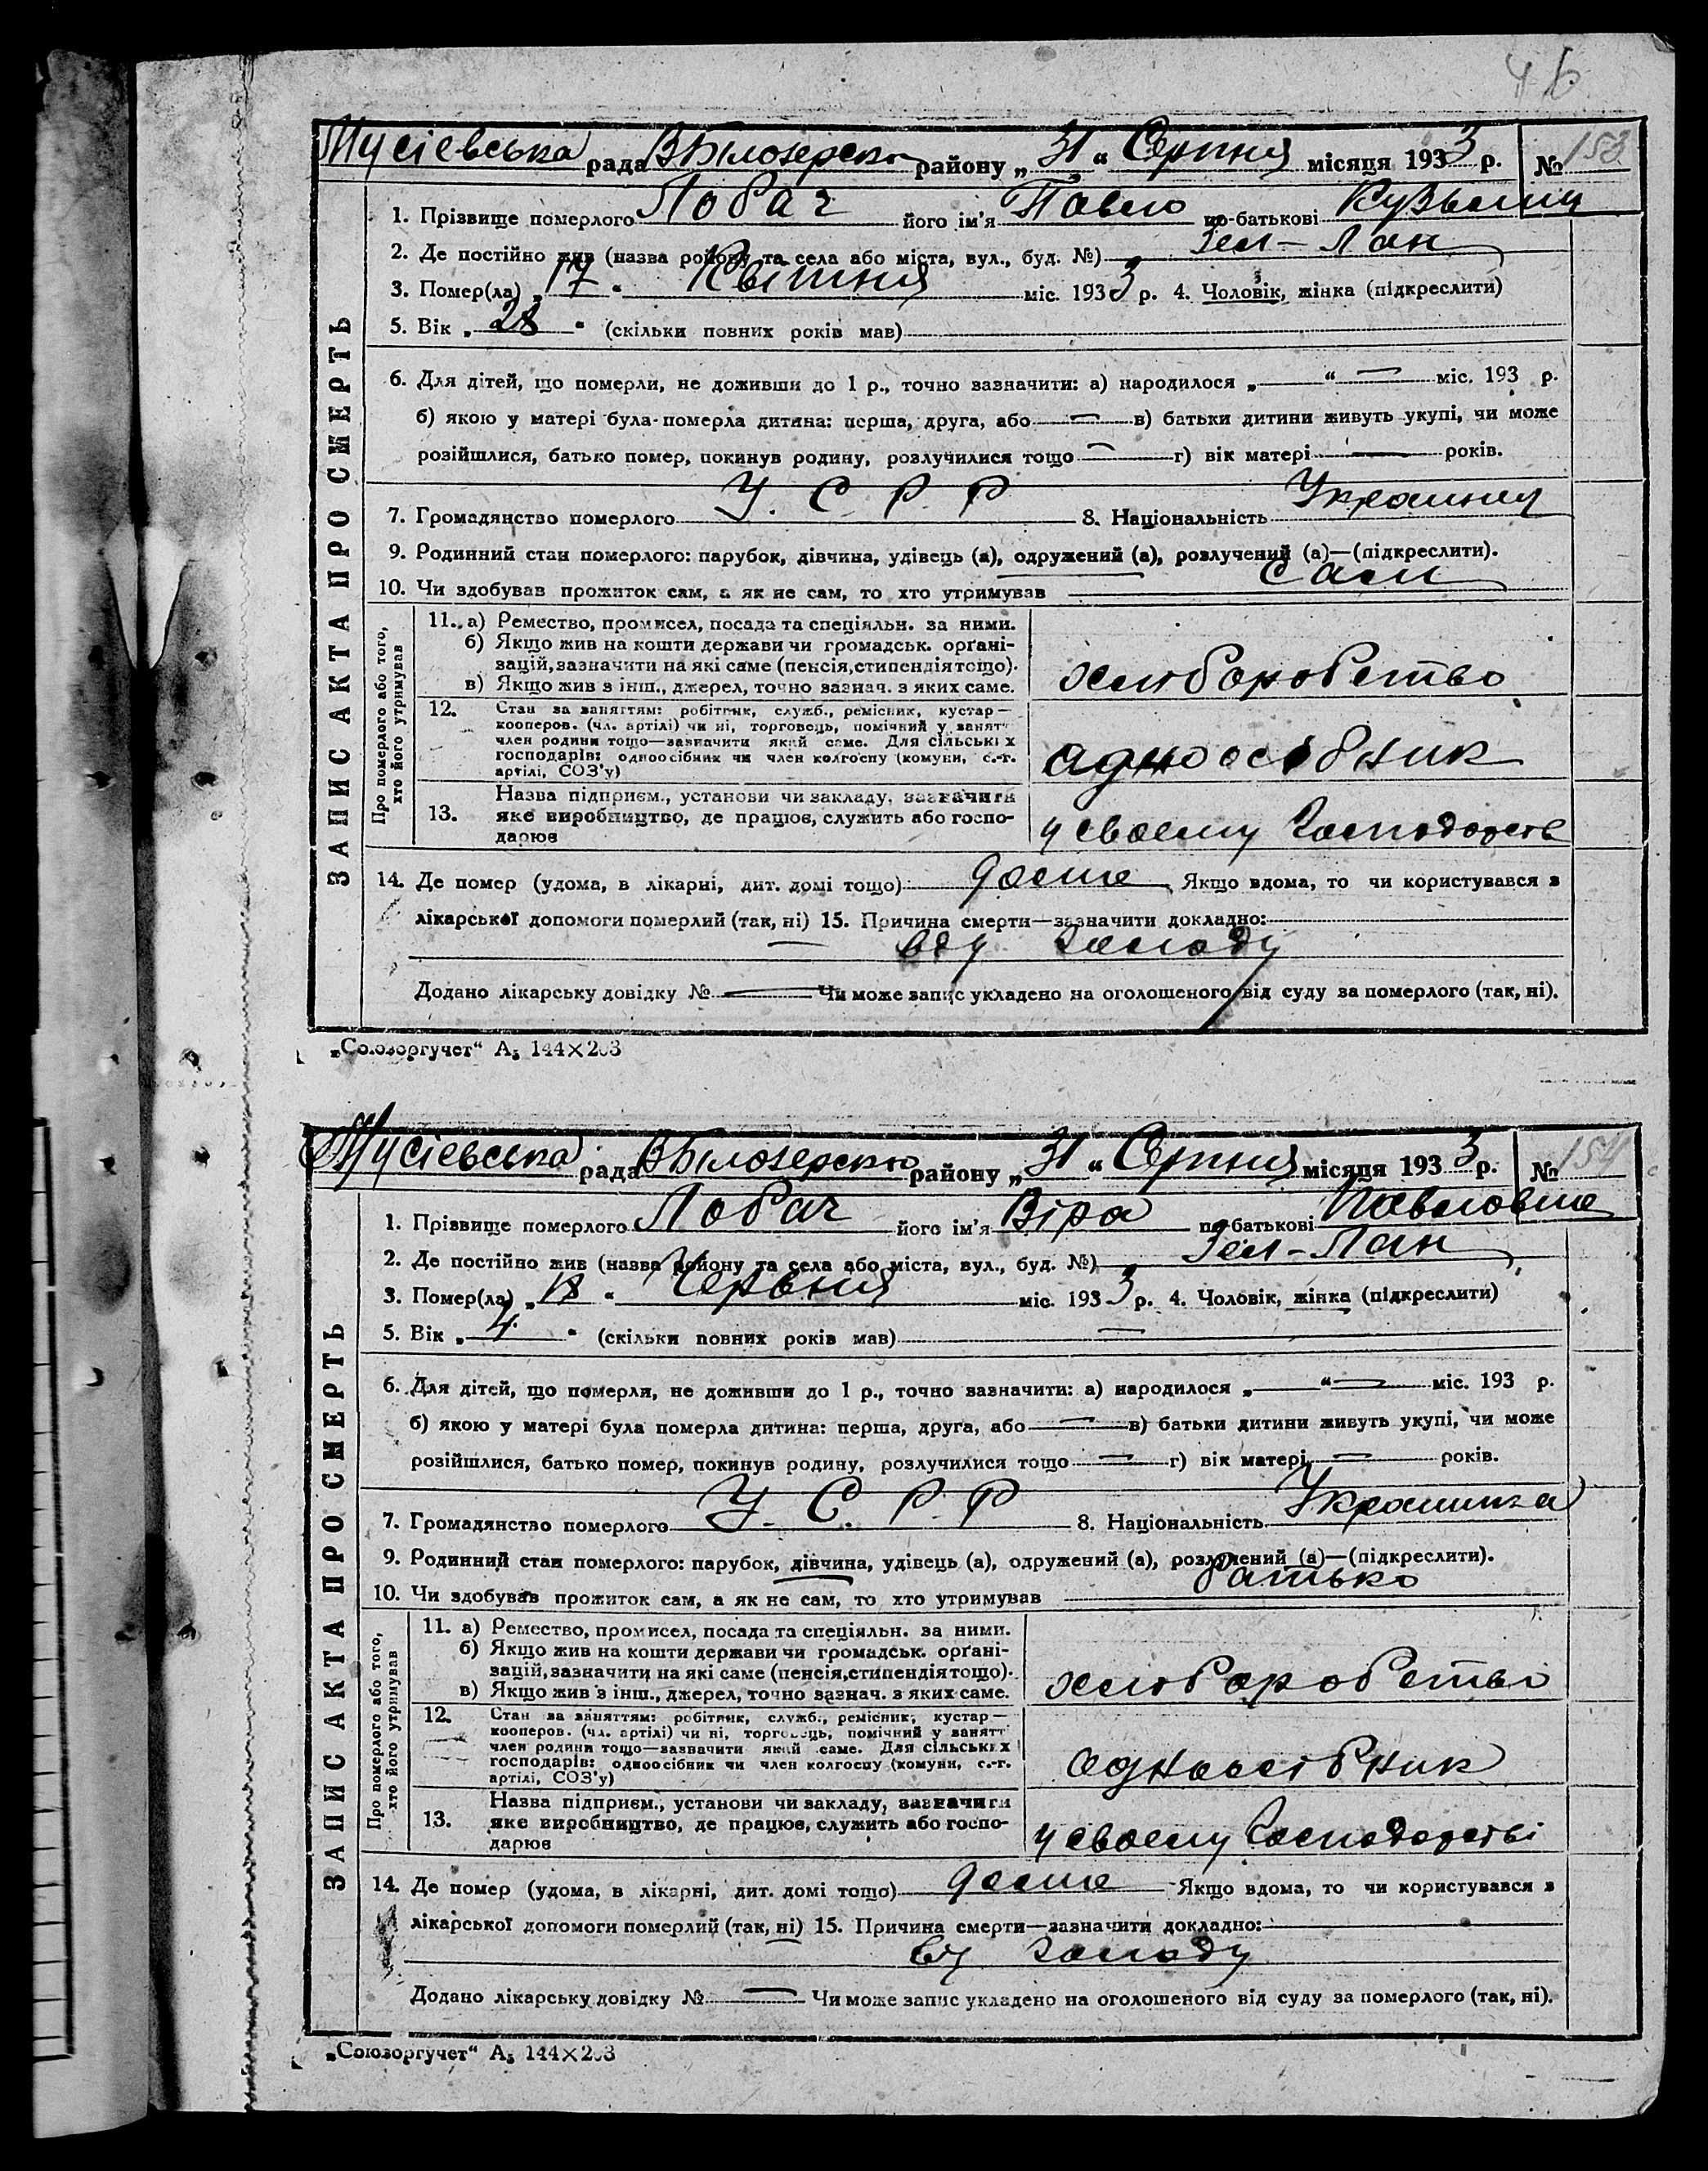 46
Мусіевська рада ВБілозерськ району „31“ Серпня місяця 1933 р. № 153
1. Прізвище померлого Лобач його ім'я Павло по-батькові Кузьмич
2. Де постійно жив (назва району та села або міста, вул., буд. №) Зел-Лан
3. Помер(ла) „17“ Квітня міс. 1933 р. 4. Чоловік, жінка (підкреслити)
5. Вік „28“ (скільки повних років мав)
6. Для дітей, що померли, не доживши до 1 р., точно зазначити: а) народилося „—“ — міс. 193 р.
б) якою у матері була померла дитина: перша, друга, або — в) батьки дитини живуть укупі, чи може
розійшлися, батько помер, покинув родину, розлучилися тощо — г) вік матері — років.
7. Громадянство померлого У. С. Р. Р 8. Національність
9. Родинний стан померлого: парубок, дівчина, удівець (а), одружений (а), розлучений (а)—(підкреслити).
10. Чи здобував прожиток сам, а як не сам, то хто утримував Сам
ЗАПИС АКТА ПРО СМЕРТЬ
Про померлого або того, хто його утримував
11. а) Ремество, промисел, посада та спеціяльн. за ними.
б) Якщо жив на кошти держави чи громадськ. орґані-
зацій, зазначити на які саме (пенсія, стипендія тощо).
в) Якщо жив з інш., джерел, точно зазнач. з яких саме.
хліборобство
12. Стан за заняттям: робітник, служб., ремісник, кустар—
кооперов. (чл. артілі) чи ні, торговець, помічний у занятт
член родини тощо—зазначити який саме. Для сільських
господарів: одноосібник чи член колгоспу (комуни, с.-г.
артілі, СОЗ'у)
адноосібник
13. Назва підприєм., установи чи закладу, зазначити
яке виробництво, де працює, служить або госпо-
дарює
у своему Господарств
14. Де помер (удома, в лікарні, дит. домі тощо) дома Якщо вдома, то чи користувався з
лікарської допомоги померлий (так, ні) 15. Причина смерти—зазначити докладно:
від голоду
Додано лікарську довідку № — Чи може запис укладено на оголошеного від суду за померлого (так, ні).
„Союзоргучет“ А₅ 144×203
Мусіевська рада ВБілозерськ району „31“ Серпня місяця 1933 р. № 154
1. Прізвище померлого Лобач його ім'я Віра по-батькові Павловна
2. Де постійно жив (назва району та села або міста, вул., буд. №) Зел-Лан
3. Помер(ла) „18“ Червня міс. 1933 р. 4. Чоловік, жінка (підкреслити)
5. Вік „4“ (скільки повних років мав) —
6. Для дітей, що померли, не доживши до 1 р., точно зазначити: а) народилося „—“ — міс. 193 р.
б) якою у матері була померла дитина: перша, друга, або — в) батьки дитини живуть укупі, чи може
розійшлися, батько помер, покинув родину, розлучилися тощо — г) вік матері — років.
7. Громадянство померлого У. С. Р. Р 8. Національність Украинка
9. Родинний стан померлого: парубок, дівчина, удівець (а), одружений (а), розлучений (а)—(підкреслити).
10. Чи здобував прожиток сам, а як не сам, то хто утримував батько
ЗАПИС АКТА ПРО СМЕРТЬ
Про померлого або того, хто його утримував
11. а) Ремество, промисел, посада та спеціяльн. за ними.
б) Якщо жив на кошти держави чи громадськ. орґані-
зацій, зазначити на які саме (пенсія, стипендія тощо).
в) Якщо жив з інш., джерел, точно зазнач. з яких саме.
хліборобство
12. Стан за заняттям: робітник, служб., ремісник, кустар—
кооперов. (чл. артілі) чи ні, торговець, помічний у занятт
член родини тощо—зазначити який саме. Для сільських
господарів: одноосібник чи член колгоспу (комуни, с.-г.
артілі, СОЗ'у)
одноосібник
13. Назва підприєм., установи чи закладу, зазначити
яке виробництво, де працює, служить або госпо-
дарює
у своему Господарстві
14. Де помер (удома, в лікарні, дит. домі тощо) дома Якщо вдома, то чи користувався з
лікарської допомоги померлий (так, ні) 15. Причина смерти—зазначити докладно:
від голоду
Додано лікарську довідку № — Чи може запис укладено на оголошеного від суду за померлого (так, ні).
„Союзоргучет“ А₅ 144×203